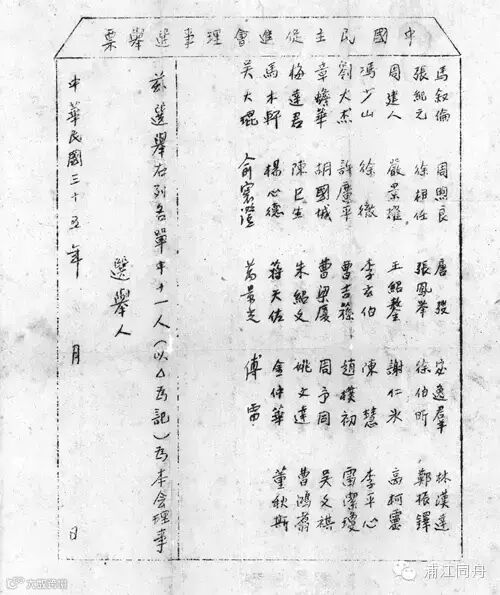 中國民主促進會理事選舉票
馬叙倫 周煦良 唐弢 宓逸羣 林漢達
張紀元 徐相任 張鳳舉 徐伯昕 鄭振鐸
周建人 嚴景耀 王紹鏊 謝仁冰 高柯靈
馮少山 徐徹 李玄伯 陳慧 李平心
劉大杰 許廣平 曹吉 趙樸初 雷潔瓊
章蟾華 胡國城 曹梁廈 周予同 吳文祺
梅達君 陳巳生 朱紹文 姚文達 曹鴻翥
馬木軒 楊心德 蔣天佐 金仲華 董秋斯
吳大琨 俞寰澄 萬景光 傅雷
茲選舉右列各單中十一人（以△為記）為本會理事
選舉人
中華民國三十五年 月 日
浦江同舟